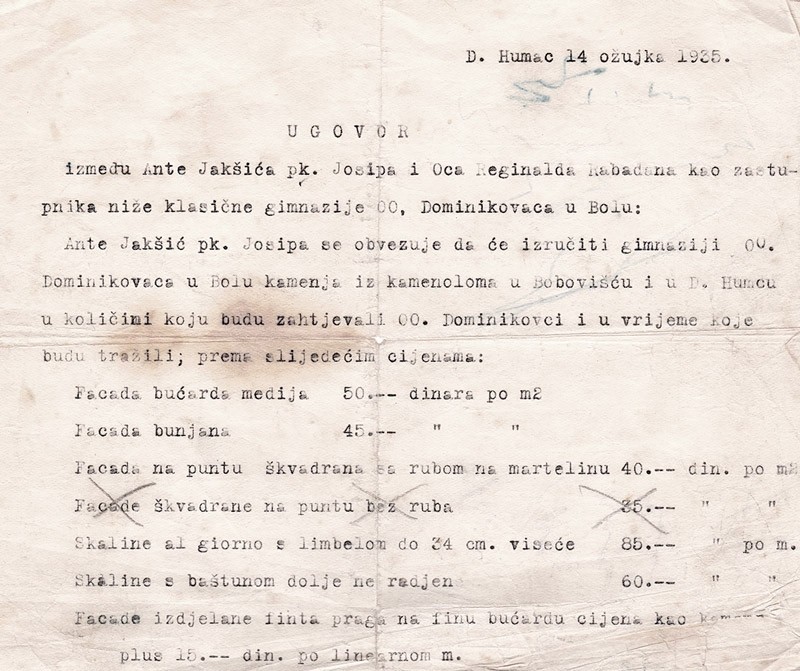 D. Humac 14 ožujka 1935.
U G O V O R
između Ante Jakšića pk. Josipa i Oca Reginalda Rabadana kao zastu-
pnika niže klasične gimnazije OO, Dominikovaca u Bolu:
Ante Jakšić pk. Josipa se obvezuje da će izručiti gimnaziji OO.
Dominikovaca u Bolu kamenja iz kamenoloma u Bobovišću i u D. Humcu
u količimi koju budu zahtjevali OO. Dominikovci i u vrijeme koje
budu tražili; prema slijedećim cijenama:
Facada bućarda medija 50.-- dinara po m2
Facada bunjana 45.-- " "
Facada na puntu škvadrana sa rubom na martelinu 40.-- din. po m2
Facade škvadrane na puntu bez ruba 35.-- " "
Skaline al giorno s limbelom do 34 cm. viseće 85.-- " po m.
Skaline s baštunom dolje ne radjen 60.-- " "
Facade izdjelane finta praga na finu bućardu cijena kao
plus 15.-- din. po linearnom m.